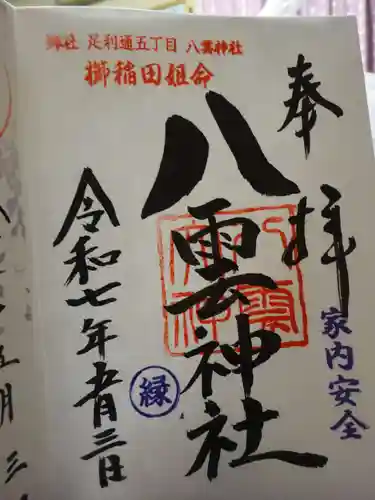 御社 足利通五丁目 八雲神社
櫛稲田姫命
奉拝
八雲神社
家内安全
縁
令和七年五月三日